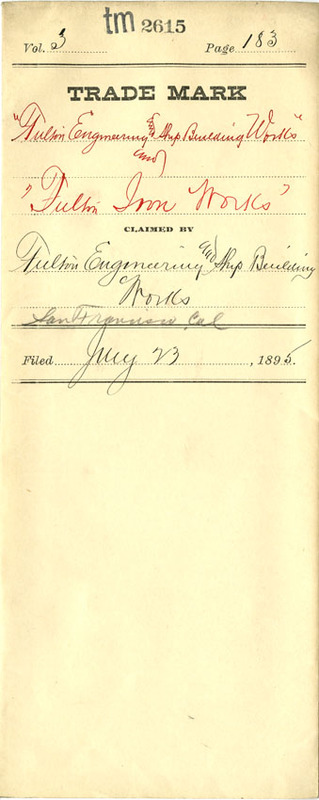 tm 2615
Vol. 3 Page 183
TRADE MARK
"Fulton Engineering & Ship Building Works"
and
"Fulton Iron Works"
CLAIMED BY
Fulton Engineering and Ship Building
Works
San Francisco Cal
Filed July 23, 1895.